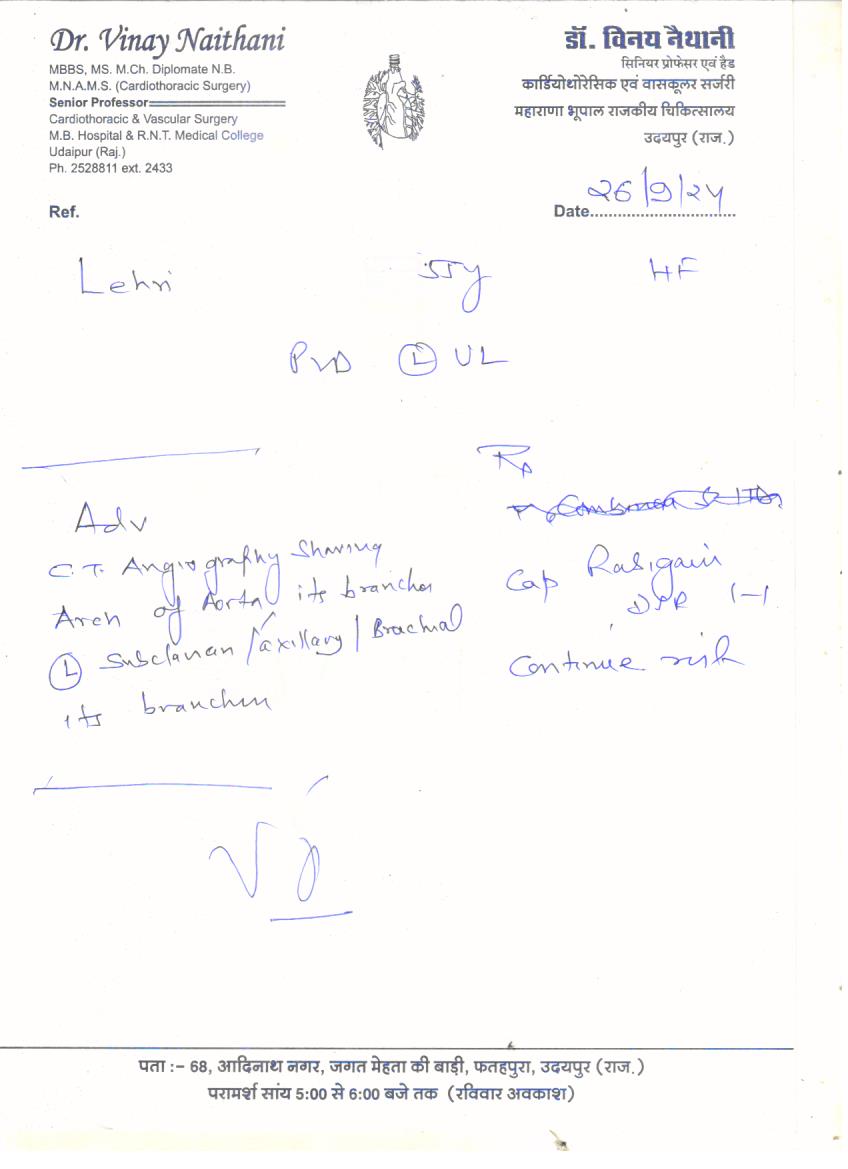 Dr. Vinay Naithani
MBBS, MS. M.Ch. Diplomate N.B.
M.N.A.M.S. (Cardiothoracic Surgery)
Senior Professor
Cardiothoracic & Vascular Surgery
M.B. Hospital & R.N.T. Medical College
Udaipur (Raj.)
Ph. 2528811 ext. 2433
डॉ. विनय नैथानी
सिनियर प्रोफेसर एवं हैड
कार्डियोथोरेसिक एवं वासकूलर सर्जरी
महाराणा भूपाल राजकीय चिकित्सालय
उदयपुर (राज.)
Ref.
Date 26/9/24
Lehri HF
PVD Ⓛ UL
Adv
C.T. Angiography Showing
Arch of Aorta its branches
Ⓛ Subclavian / axillary / Brachial
its branches
Rx
Cap
Continue
पता :– 68, आदिनाथ नगर, जगत मेहता की बाड़ी, फतहपुरा, उदयपुर (राज.)
परामर्श सांय 5:00 से 6:00 बजे तक (रविवार अवकाश)